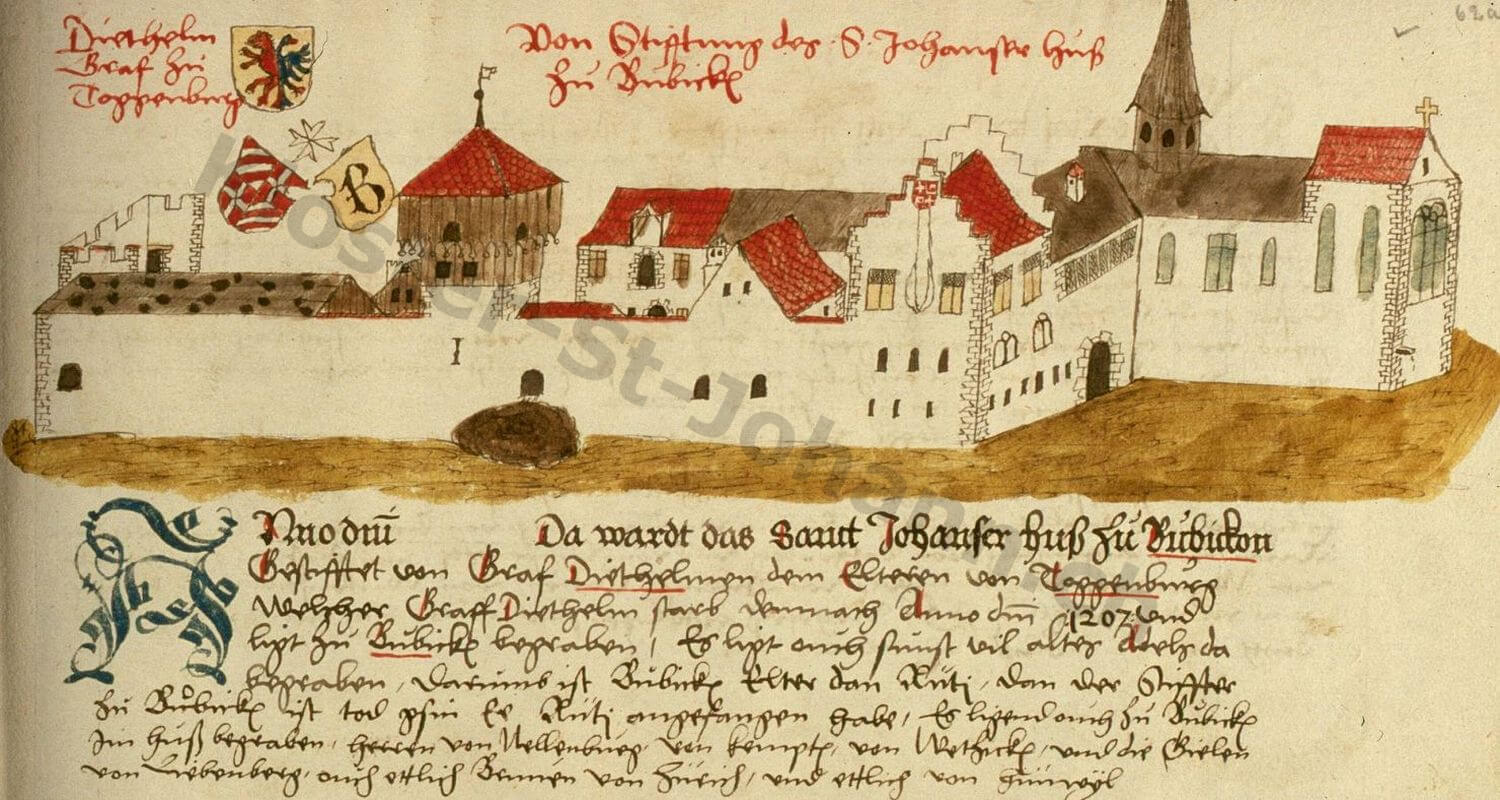 Diethelm
Graf zu
Toggenburg
Von Stifftung des S. Johanser huß
zu Bubickꝫ
62a
B
I
kloster-st-johann.ch
Anno dm̄ Da wardt das Sant Johanser huß zů Bůbickon
Gestifftet von Graf Diethelmen dem Elteren von Toggenburg
welcher Graff Diethelm starb demnach Anno dm̄ 1207 und
ligt zu Bubickꝫ begraben, Es ligt ouch sunst vil altes Adels da
begraben, Darumb ist Bubickꝫ Elter dan Rüti, dan der Stiffter
zu Bůbickꝫ ist tod gsin Ee Rüti angefangen habe, Es ligend ouch zu Bubickꝫ
Im huß begraben, herren von Nellenburg, von kemptꝫ, von Wetzickꝫ, und die Gielen
von Liebenberg, ouch ettlich Brunen von Zürich, und ettlich von hünwyl